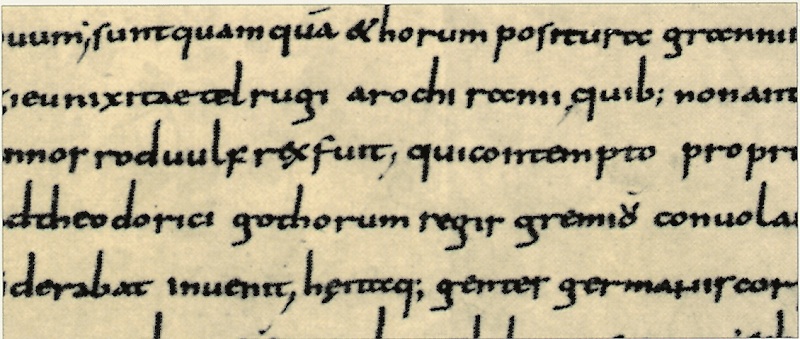 uum, sunt quamquā & horum positura grannii
ieunixitaetel rugi arochi rannii quib; nonant
nnos roduulf rex fuit, qui contempto propri
dtheodorici gothorum regis gremio conuola
iderabat inuenit, hęitaq; gentes germanis cor